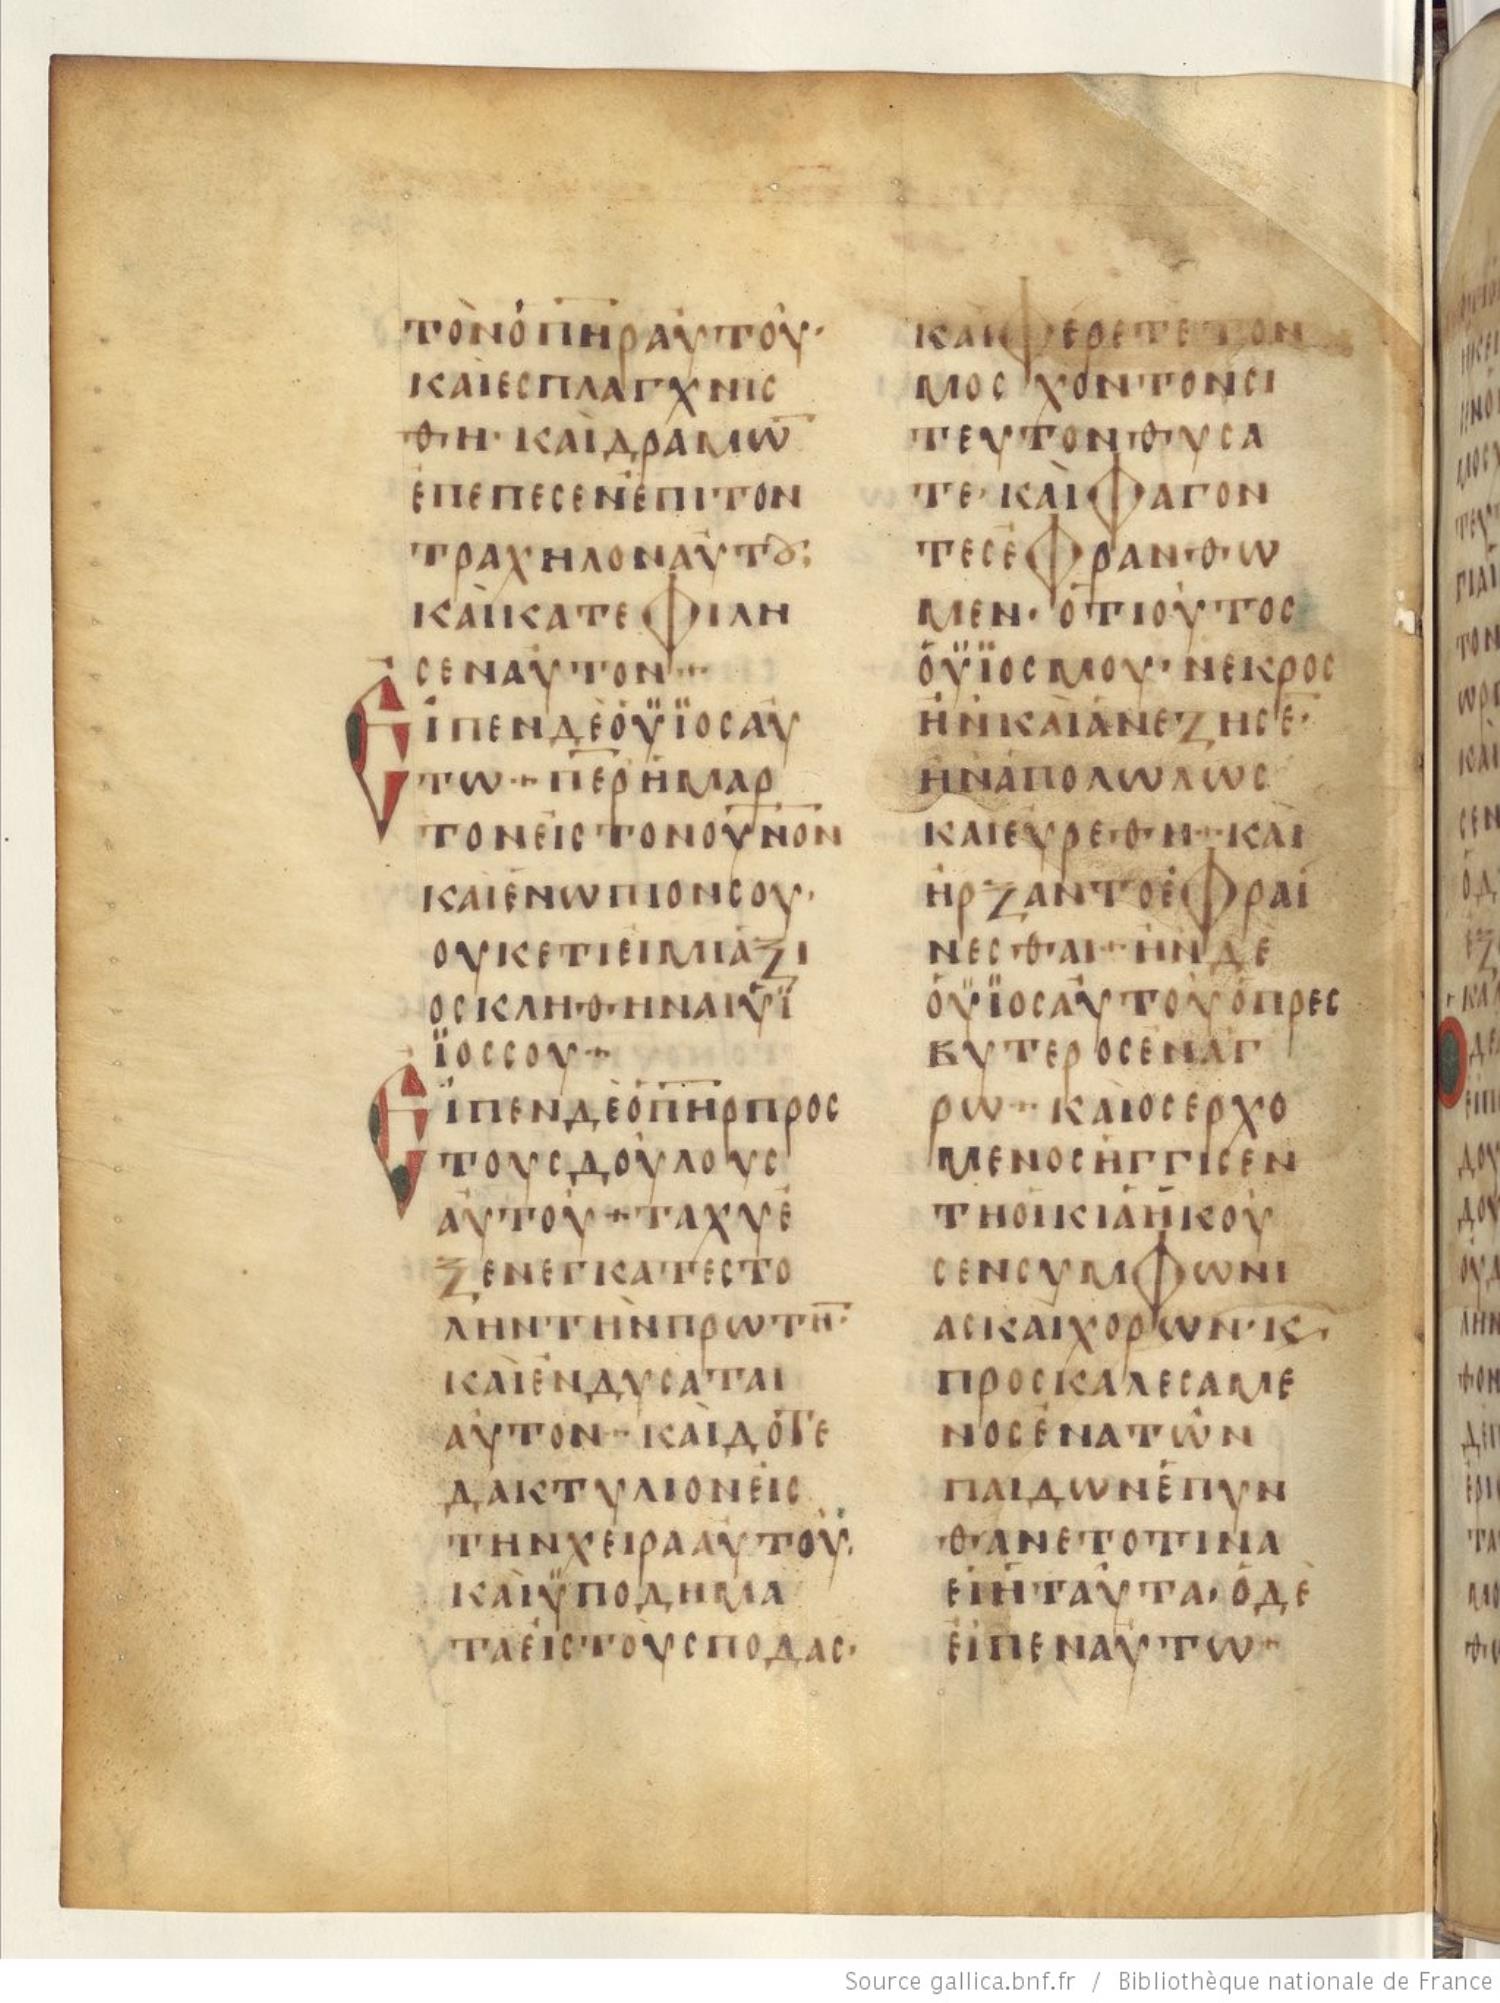 ΤΟΝ Ὁ ΠΗΡ ΑΥΤΟΥ·
ΚΑΙ ΕΣΠΛΑΓΧΝΙΣ
ΘΗ· ΚΑΙ ΔΡΑΜΩ̅
ΕΠΕΠΕΣΕΝ ΕΠΙ ΤΟΝ
ΤΡΑΧΗΛΟΝ ΑΥΤȢ·
ΚΑΙ ΚΑΤΕΦΙΛΗ
ΣΕΝ ΑΥΤΟΝ+
ΕΙΠΕΝ ΔΕ Ο ΥΪΟΣ ΑΥ
ΤΩ+ Π̅Ε̅Ρ ΗΜΑΡ
ΤΟΝ ΕΙΣ ΤΟΝ ΟΥ̅Ν̅Ο̅Ν
ΚΑΙ ΕΝΩΠΙΟΝ ΣΟΥ·
ΟΥΚΕΤΙ ΕΙΜΙ ΑΞΙ
ΟΣ ΚΛΗΘΗΝΑΙ ΥΪ
ΪΟΣ ΣΟΥ+
ΕΙΠΕΝ ΔΕ Ο Π̅Η̅Ρ ΠΡΟΣ
ΤΟΥΣ ΔΟΥΛΟΥΣ
ΑΥΤΟΥ+ ΤΑΧΥ Ε
ΞΕΝΕΓΚΑΤΕ ΣΤΟ
ΛΗΝ ΤΗΝ ΠΡΩΤΗΝ·
ΚΑΙ ΕΝΔΥΣΑΤΑΙ
ΑΥΤΟΝ+ ΚΑΙ ΔΟΤΕ
ΔΑΚΤΥΛΙΟΝ ΕΙΣ
ΤΗΝ ΧΕΙΡΑ ΑΥΤΟΥ·
ΚΑΙ ΥΠΟΔΗΜΑ
ΤΑ ΕΙΣ ΤΟΥΣ ΠΟΔΑΣ·
ΚΑΙ ΦΕΡΕΤΕ ΤΟΝ
ΜΟΣΧΟΝ ΤΟΝ ΣΙ
ΤΕΥΤΟΝ ΘΥΣΑ
ΤΕ· ΚΑΙ ΦΑΓΟΝ
ΤΕΣ ΕΦΡΑΝΘΩ
ΜΕΝ· ΟΤΙ ΟΥΤΟΣ
Ο ΥΪΟΣ ΜΟΥ· ΝΕΚΡΟΣ
ΗΝ ΚΑΙ ΑΝΕΖΗΣΕ̅·
ΗΝ ΑΠΟΛΩΛΩΣ
ΚΑΙ ΕΥΡΕΘΗ+ ΚΑΙ
ΗΡΞΑΝΤΟ ΕΦΡΑΙ
ΝΕΣΘΑΙ+ ΗΝ ΔΕ
Ο ΥΪΟΣ ΑΥΤΟΥ Ο ΠΡΕΣ
ΒΥΤΕΡΟΣ ΕΝ ΑΓ
ΡΩ+ ΚΑΙ ΟΣ ΕΡΧΟ
ΜΕΝΟΣ ΗΓΓΙΣΕΝ
ΤΗ ΟΙΚΙΑ ΗΚΟΥ
ΣΕΝ ΣΥΜΦΩΝΙ
ΑΣ ΚΑΙ ΧΟΡΩΝ· Κ,
ΠΡΟΣΚΑΛΕΣΑΜΕ
ΝΟΣ ΕΝΑ ΤΩΝ
ΠΑΙΔΩΝ ΕΠΥΝ
ΘΑΝΕΤΟ ΤΙΝΑ
ΕΙΗ ΤΑΥΤΑ· Ο ΔΕ
ΕΙΠΕΝ ΑΥΤΩ+
Source gallica.bnf.fr / Bibliothèque nationale de France